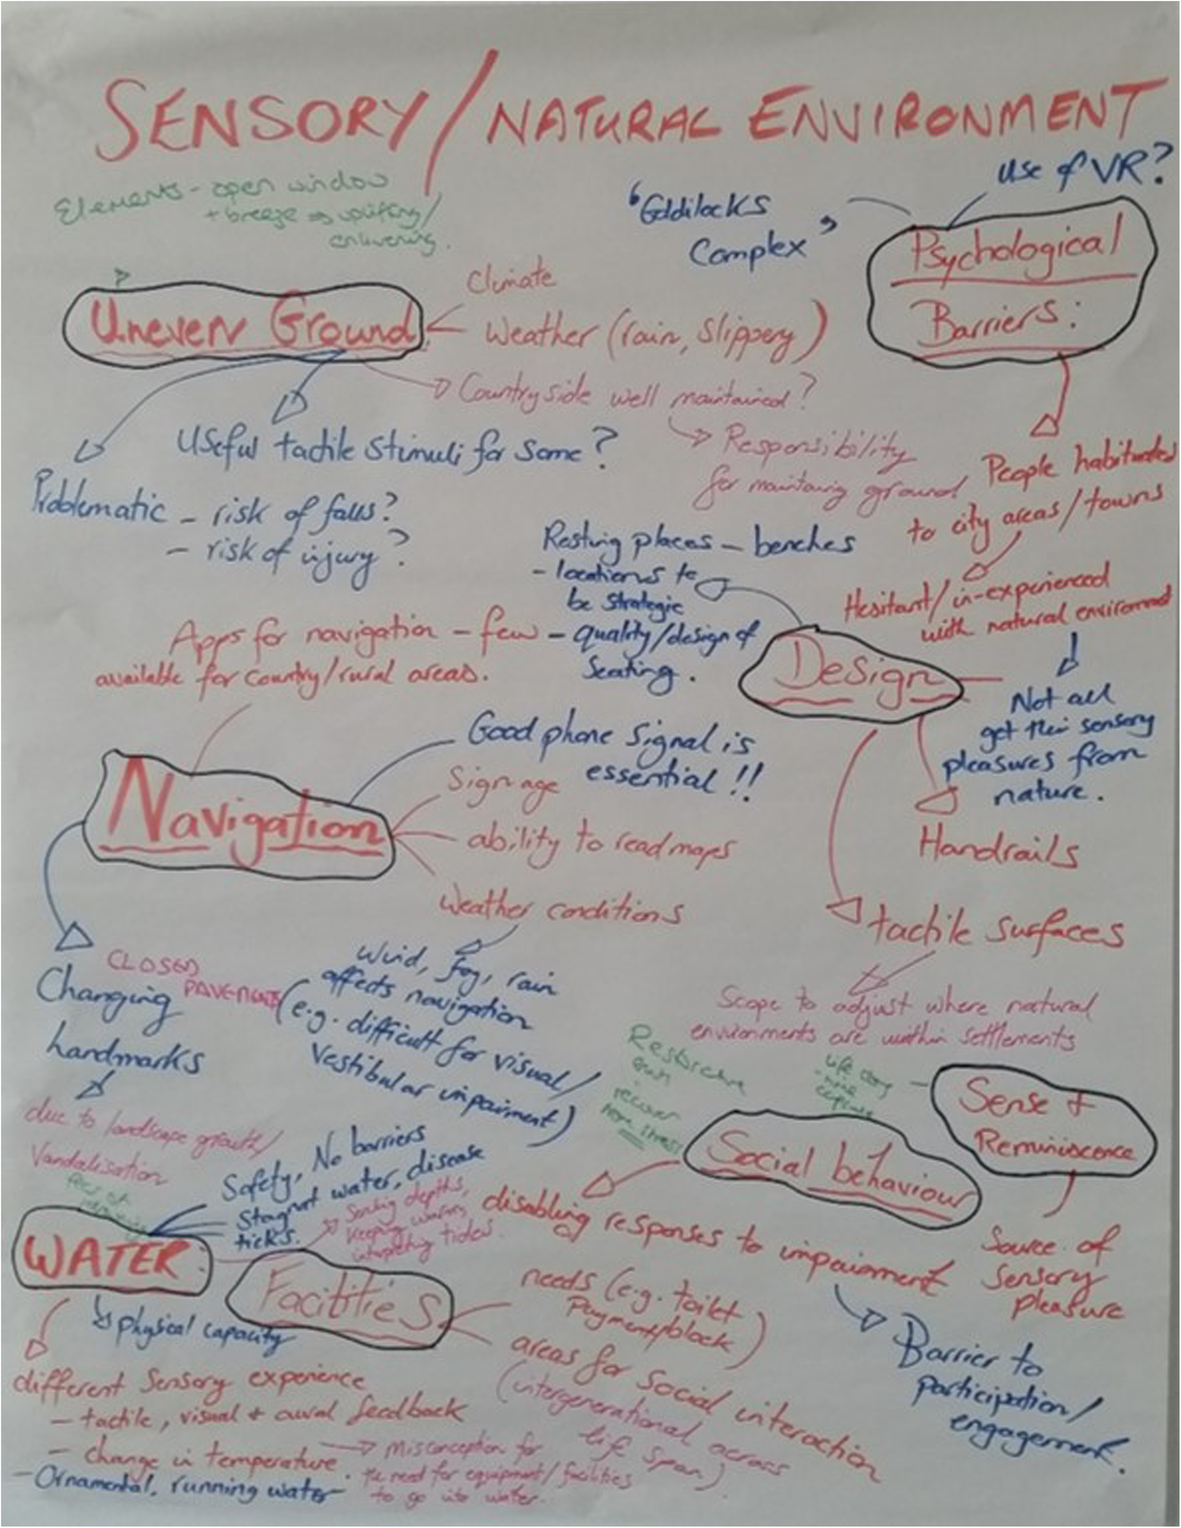 SENSORY / NATURAL ENVIRONMENT
Elements - open window
+ breeze ⇒ uplifting/
enlivening.
Use of VR?
'Goldilocks
Complex'
Psychological
Barriers:
Uneven Ground
Climate
Weather (rain, slippery)
Countryside well maintained?
Responsibility
for maintaining ground
Useful tactile stimuli for some?
Problematic - risk of falls?
- risk of injury?
People habituated
to city areas/towns
Hesitant/in-experienced
with natural environment
Not all
get their sensory
pleasures from
nature.
Resting places - benches
- locations to
be strategic
- quality/design of
seating.
Design
Handrails
tactile surfaces
Scope to adjust where natural
environments are within settlements
Apps for navigation - few
available for country/rural areas.
Navigation
Good phone signal is
essential!!
Signage
ability to read maps
Weather conditions
Wind, fog, rain
affects navigation
(e.g. difficult for visual/
vestibular impairment)
CLOSED
PAVEMENTS
Changing
landmarks
due to landscape growth/
Vandalisation
Restorative
recover
from stress
Sense +
Reminiscence
Source of
sensory
pleasure
Social behaviour
disabling responses to impairment
Barrier to
participation/
engagement.
Safety, No barriers
Stagnant water, disease
ticks.
depths,
keeping warm,
interpreting tides.
fear of
WATER
physical capacity
different sensory experience
- tactile, visual + aural feedback
- change in temperature.
- Ornamental, running water
misconception for
the need for equipment/facilities
to go into water.
Facilities
needs (e.g. toilet
Payment/block)
areas for social interaction
(intergenerational across
life span)